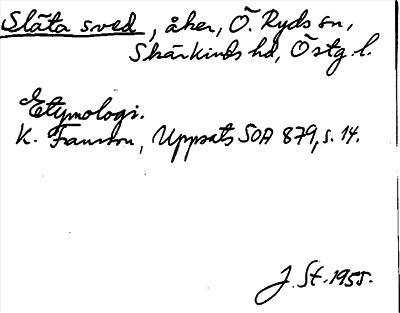 Släta sved, åker, Ö. Ryds sn,
Skärkinds hd, Östg. l.
Etymologi.
K. Fransson, Uppsats SOA 879, s. 14.
J. St. 1955.